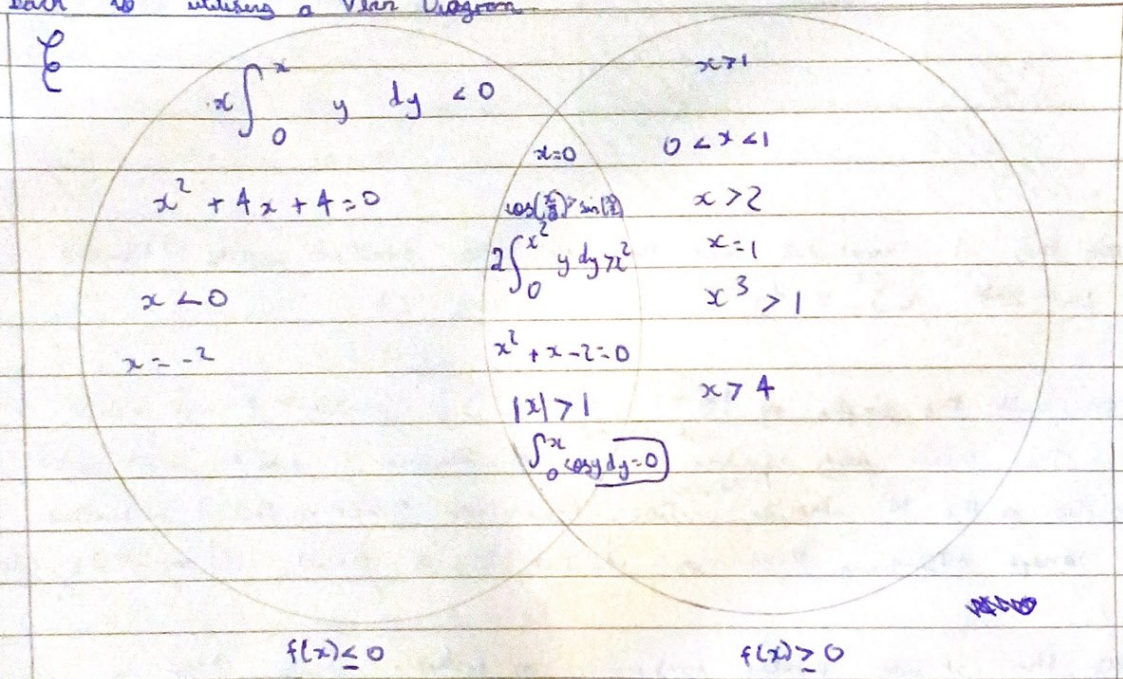 utilising a Venn Diagram.
ℰ
x∫₀ˣ y dy < 0
x² + 4x + 4 = 0
x < 0
x = -2
x = 0
2∫₀^(x²) y dy > x²
x² + x - 2 = 0
|x| > 1
∫₀ˣ cosy dy = 0
x > 1
0 < x < 1
x > 2
x = 1
x³ > 1
x > 4
f(x) ≤ 0
f(x) ≥ 0